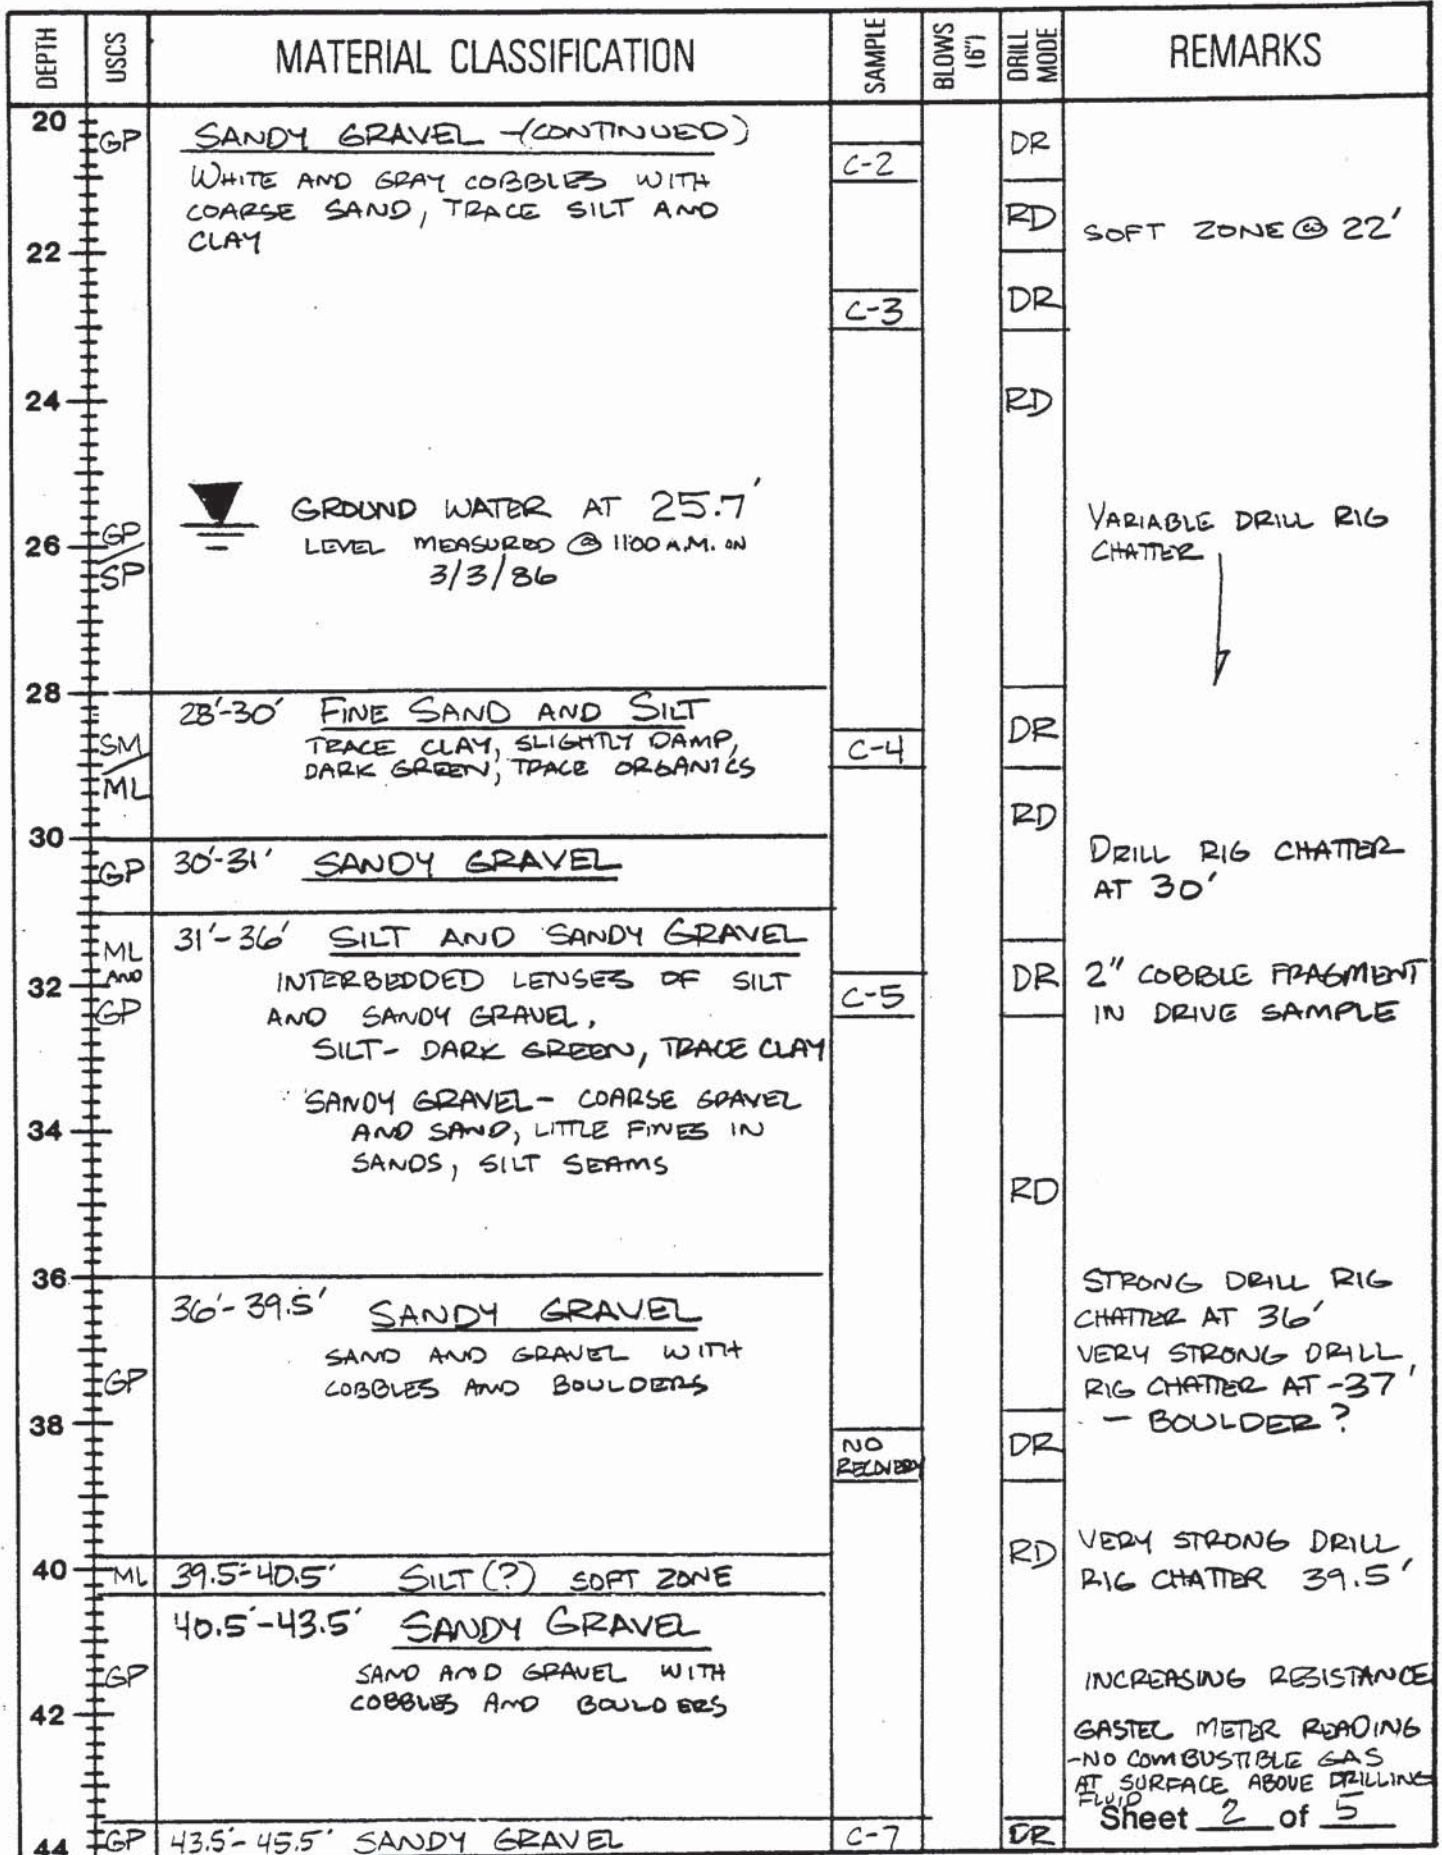 DEPTH
USCS
MATERIAL CLASSIFICATION
SAMPLE
BLOWS (6")
DRILL MODE
REMARKS
20
GP
SANDY GRAVEL -(CONTINUED)
DR
C-2
WHITE AND GRAY COBBLES WITH
COARSE SAND, TRACE SILT AND
CLAY
RD
SOFT ZONE @ 22'
22
C-3
DR
24
RD
GROUND WATER AT 25.7'
LEVEL MEASURED @ 11:00 A.M. ON
3/3/86
VARIABLE DRILL RIG
CHATTER
26
GP
SP
28
28'-30' FINE SAND AND SILT
TRACE CLAY, SLIGHTLY DAMP,
DARK GREEN, TRACE ORGANICS
SM
ML
C-4
DR
RD
30
GP
30'-31' SANDY GRAVEL
DRILL RIG CHATTER
AT 30'
31'-36' SILT AND SANDY GRAVEL
ML
AND
GP
32
INTERBEDDED LENSES OF SILT
AND SANDY GRAVEL,
SILT- DARK GREEN, TRACE CLAY
C-5
DR
2" COBBLE FRAGMENT
IN DRIVE SAMPLE
SANDY GRAVEL- COARSE GRAVEL
AND SAND, LITTLE FINES IN
SANDS, SILT SEAMS
34
RD
36
36'-39.5' SANDY GRAVEL
SAND AND GRAVEL WITH
COBBLES AND BOULDERS
GP
STRONG DRILL RIG
CHATTER AT 36'
VERY STRONG DRILL
RIG CHATTER AT -37'
- BOULDER?
38
NO
RECOVERY
DR
RD
VERY STRONG DRILL
RIG CHATTER 39.5'
40
ML
39.5'-40.5' SILT (?) SOFT ZONE
40.5'-43.5' SANDY GRAVEL
SAND AND GRAVEL WITH
COBBLES AND BOULDERS
GP
42
INCREASING RESISTANCE
GASTEC METER READING
-NO COMBUSTIBLE GAS
AT SURFACE ABOVE DRILLING
FLUID
44
GP
43.5'-45.5' SANDY GRAVEL
C-7
DR
Sheet 2 of 5